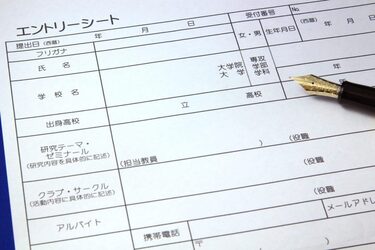 エントリーシート
受付番号 No
提出日(西暦) 年 月 日
フリガナ
女・男 生年月日 (西暦)
氏名
年
学校名
大学院 専攻
大学 学部
学科
出身高校 立 高校
研究テーマ・
ゼミナール
(研究内容を具体的に記述)
(担当教員 ) (役職
クラブ・サークル
(活動内容を具体的に記述)
) (役職
アルバイト
メールアドレ
携帯電話
〒